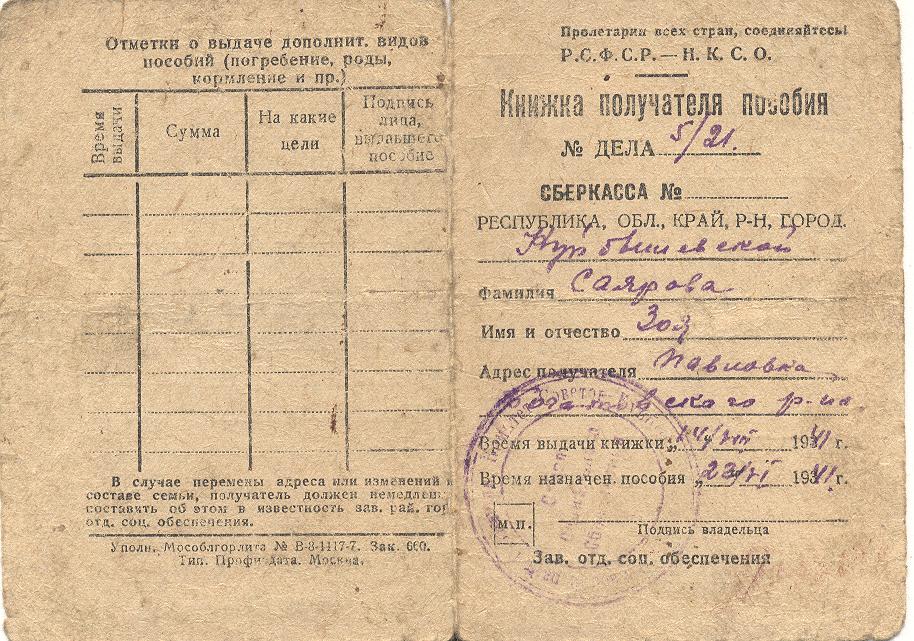 Отметки о выдаче дополнит. видов
пособий (погребение, роды,
кормление и пр.)
Время выдачи
Сумма
На какие
цели
Подпись
лица,
выдавшего
пособие
В случае перемены адреса или изменений в
составе семьи, получатель должен немедлен
составить об этом в известность зав. рай. гор
отд. соц. обеспечения.
Уполн. Мособлгорлита № В-8-1117-7. Зак. 660.
Тип. Профиздата. Москва.
Пролетарии всех стран, соединяйтесь!
Р.С.Ф.С.Р.—Н.К.С.О.
Книжка получателя пособия
№ ДЕЛА 5/21.
СБЕРКАССА №
РЕСПУБЛИКА, ОБЛ., КРАЙ, Р-Н, ГОРОД.
Куйбышевской
Фамилия Саярова
Имя и отчество Зоя
Адрес получателя Павловка
ского р-на
Время выдачи книжки „ /VIII 1941 г.
Время назначен. пособия „23/VI 1941 г.
м.п.
Подпись владельца
Зав. отд. соц. обеспечения